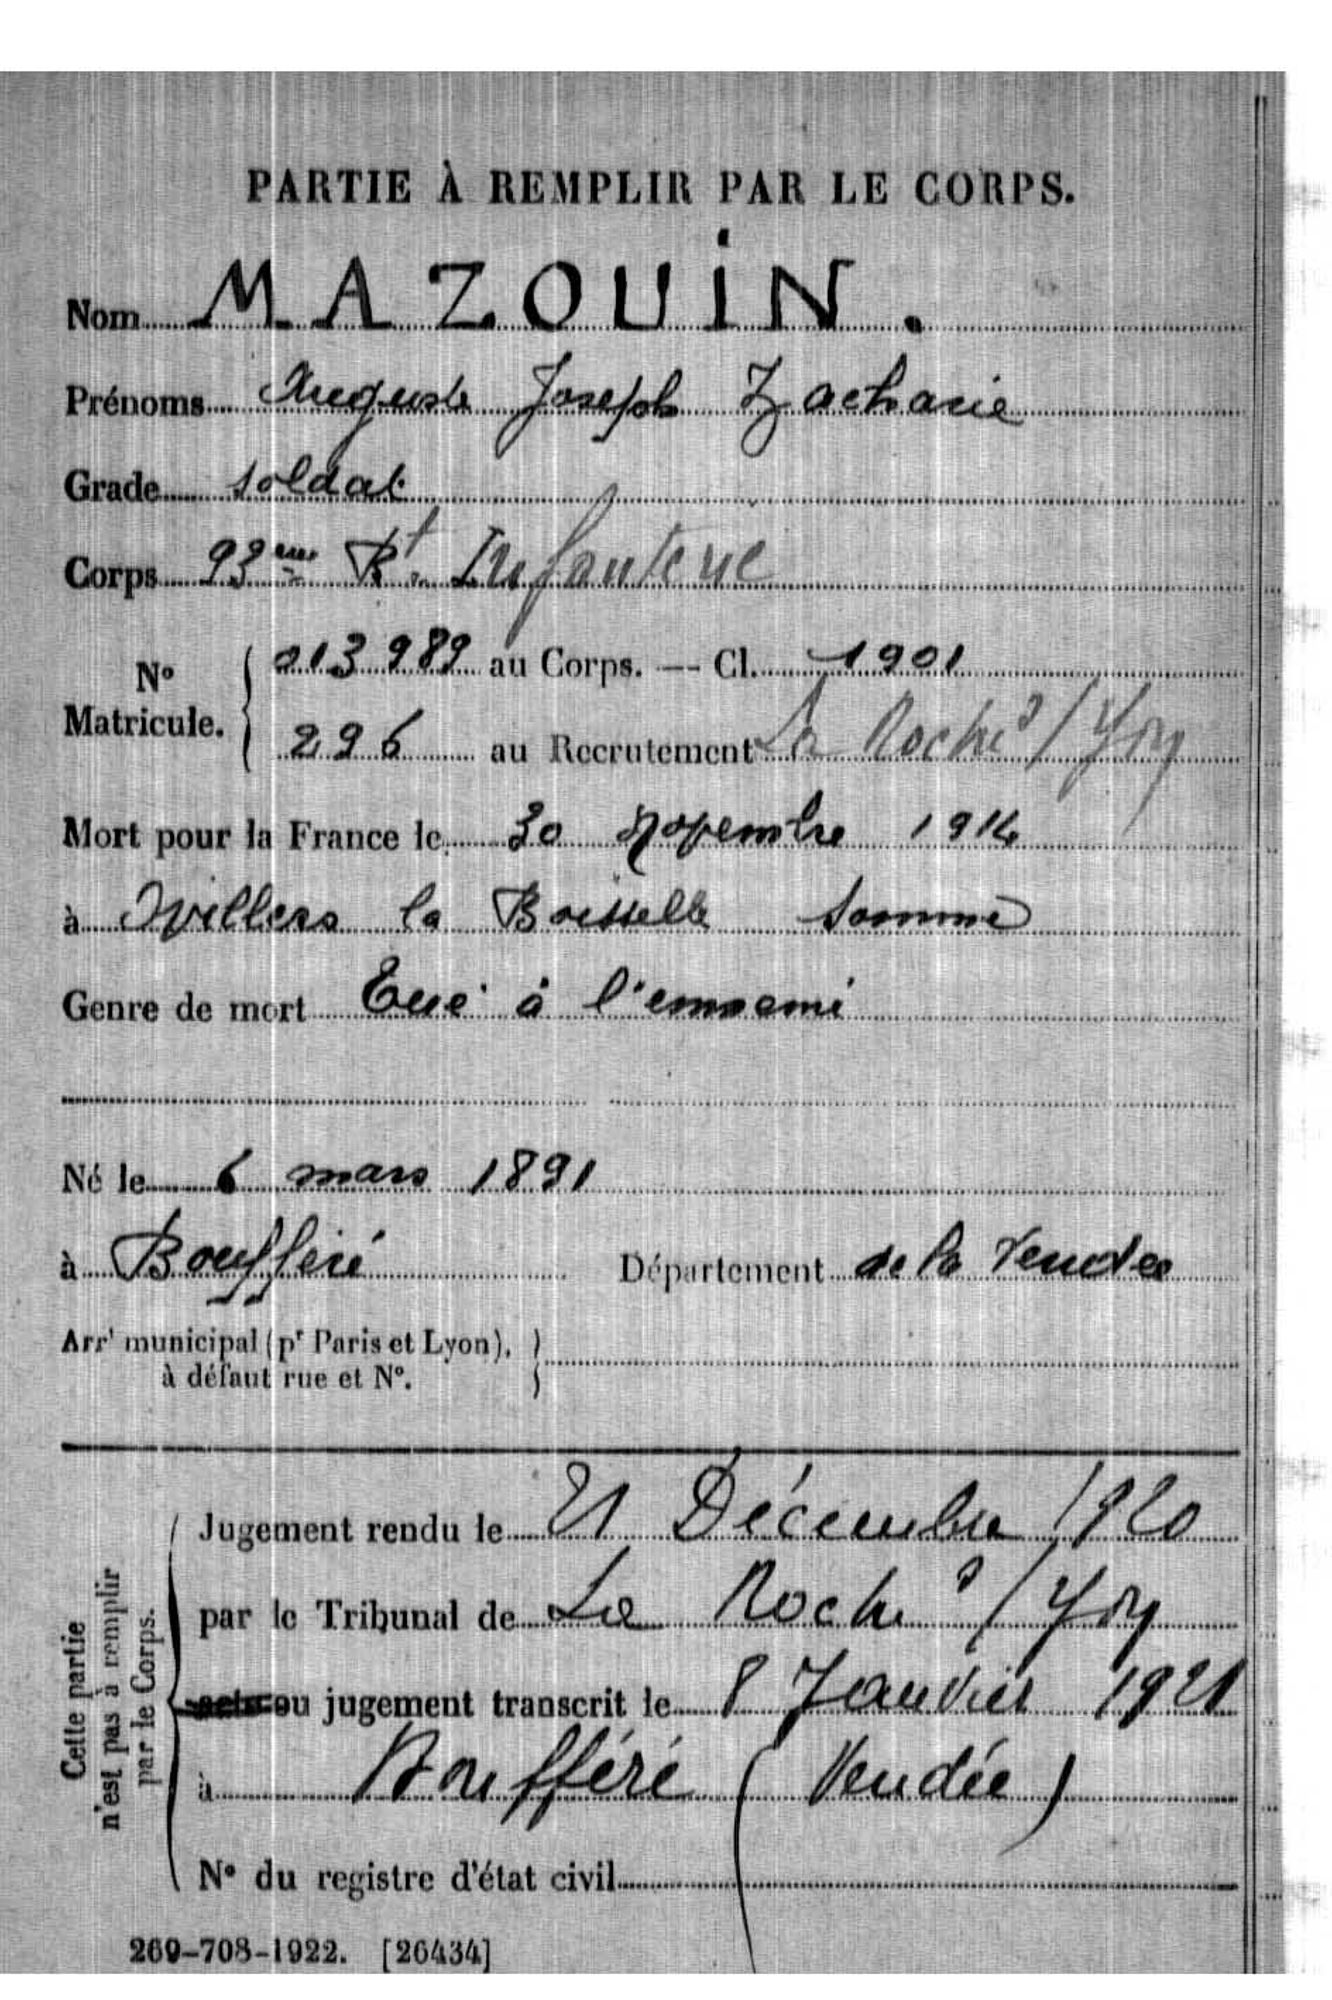 PARTIE À REMPLIR PAR LE CORPS.
Nom MAZOUIN.
Prénoms Auguste Joseph Zacharie
Grade soldat
Corps 93ème Rt. Infanterie
No Matricule. 013989 au Corps. — Cl. 1901
296 au Recrutement La Roche s/ Yon
Mort pour la France le 30 novembre 1914
à Ovillers la Boisselle Somme
Genre de mort Tué à l'ennemi
Né le 6 mars 1891
à Boufféré Département de la Vendée
Arrt municipal (pr Paris et Lyon),
à défaut rue et No.
Cette partie
n'est pas à remplir
par le Corps.
Jugement rendu le 21 Décembre 1920
par le Tribunal de La Roche s/ Yon
acte ou jugement transcrit le 8 Janvier 1921
à Boufféré (Vendée)
No du registre d'état civil
269-708-1922. [26434]